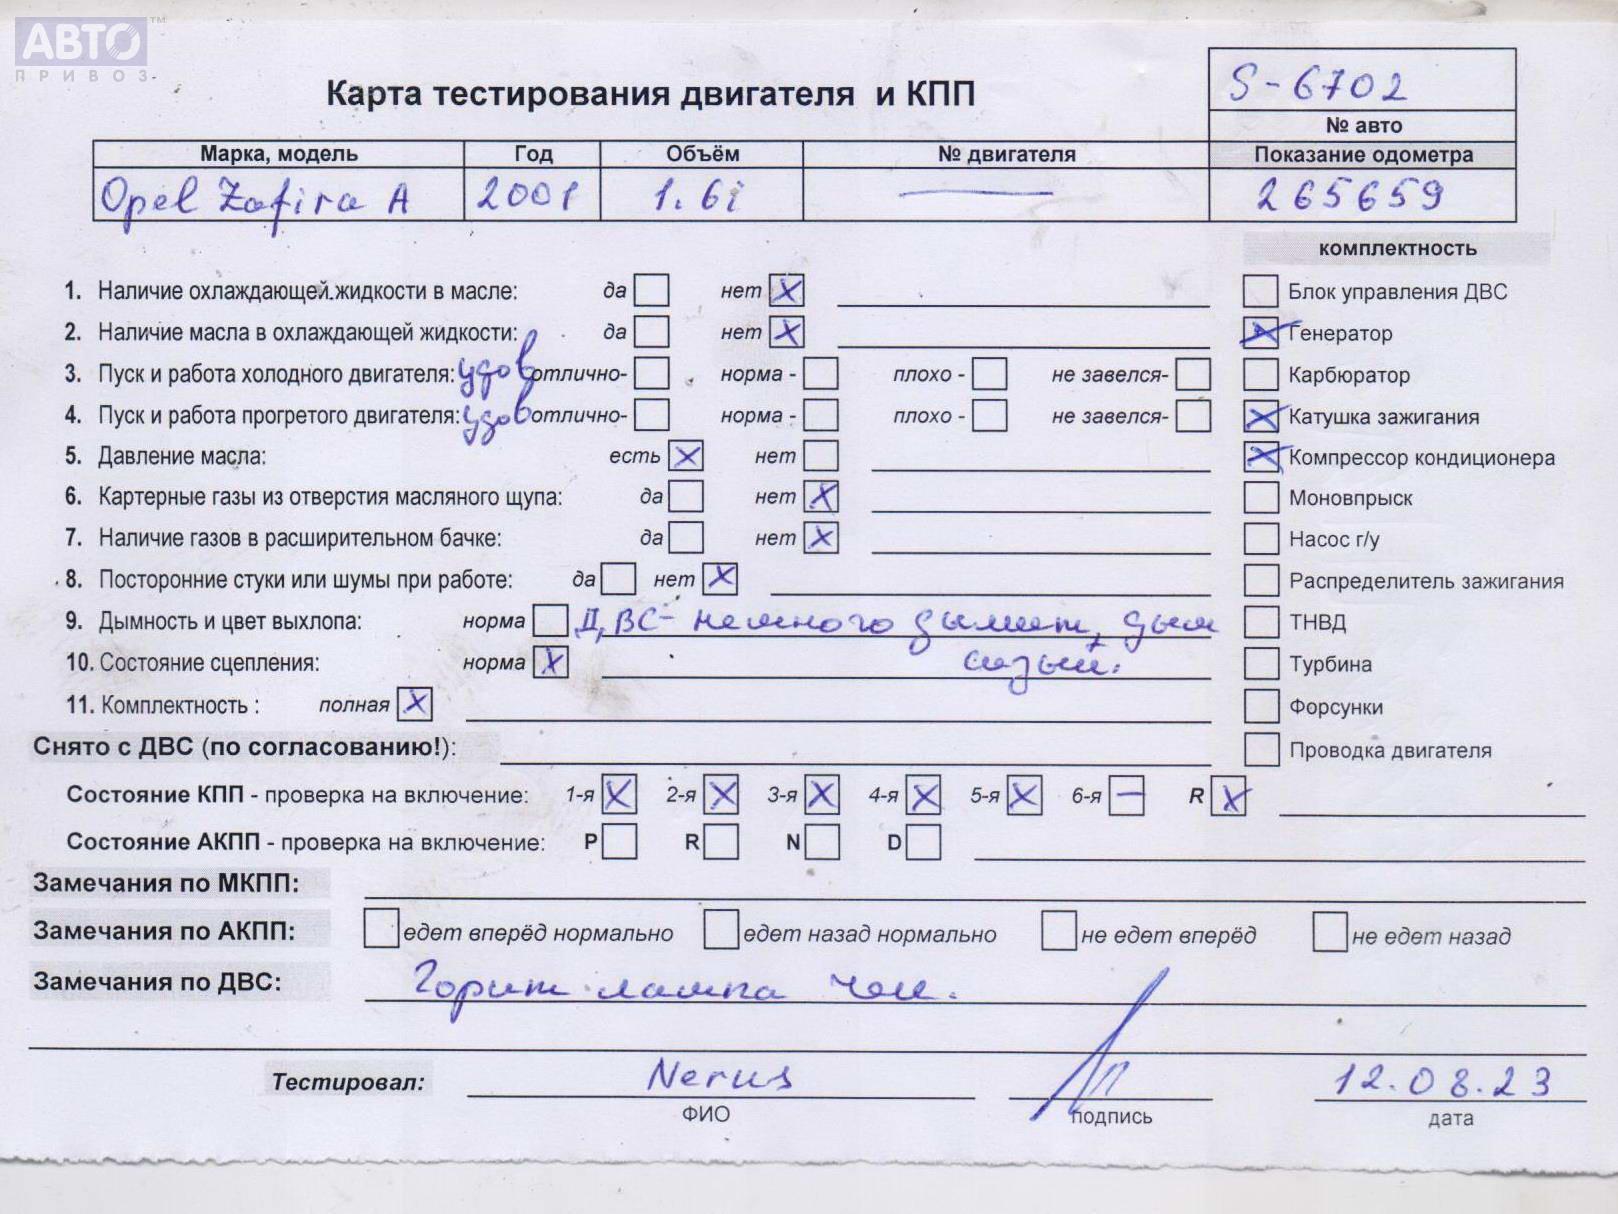 АВТО™
ПРИВОЗ
Карта тестирования двигателя и КПП
S-6702
№ авто
Марка, модель Год Объём № двигателя Показание одометра
Opel Zafira A 2001 1.6i — 265659
комплектность
1. Наличие охлаждающей жидкости в масле: да нет X
Блок управления ДВС
2. Наличие масла в охлаждающей жидкости: да нет X
X Генератор
3. Пуск и работа холодного двигателя: удов отлично- норма - плохо - не завелся-
Карбюратор
4. Пуск и работа прогретого двигателя: удов отлично- норма - плохо - не завелся-
X Катушка зажигания
5. Давление масла: есть X нет
X Компрессор кондиционера
6. Картерные газы из отверстия масляного щупа: да нет X
Моновпрыск
7. Наличие газов в расширительном бачке: да нет X
Насос г/у
8. Посторонние стуки или шумы при работе: да нет X
Распределитель зажигания
9. Дымность и цвет выхлопа: норма ДВС- немного дымит, дым
ТНВД
10. Состояние сцепления: норма X сизый.
Турбина
11. Комплектность : полная X
Форсунки
Снято с ДВС (по согласованию!):
Проводка двигателя
Состояние КПП - проверка на включение: 1-я X 2-я X 3-я X 4-я X 5-я X 6-я — R X
Состояние АКПП - проверка на включение: P R N D
Замечания по МКПП:
Замечания по АКПП: едет вперёд нормально едет назад нормально не едет вперёд не едет назад
Замечания по ДВС: Горит лампа чек.
Тестировал: Nerus 12.08.23
ФИО подпись дата